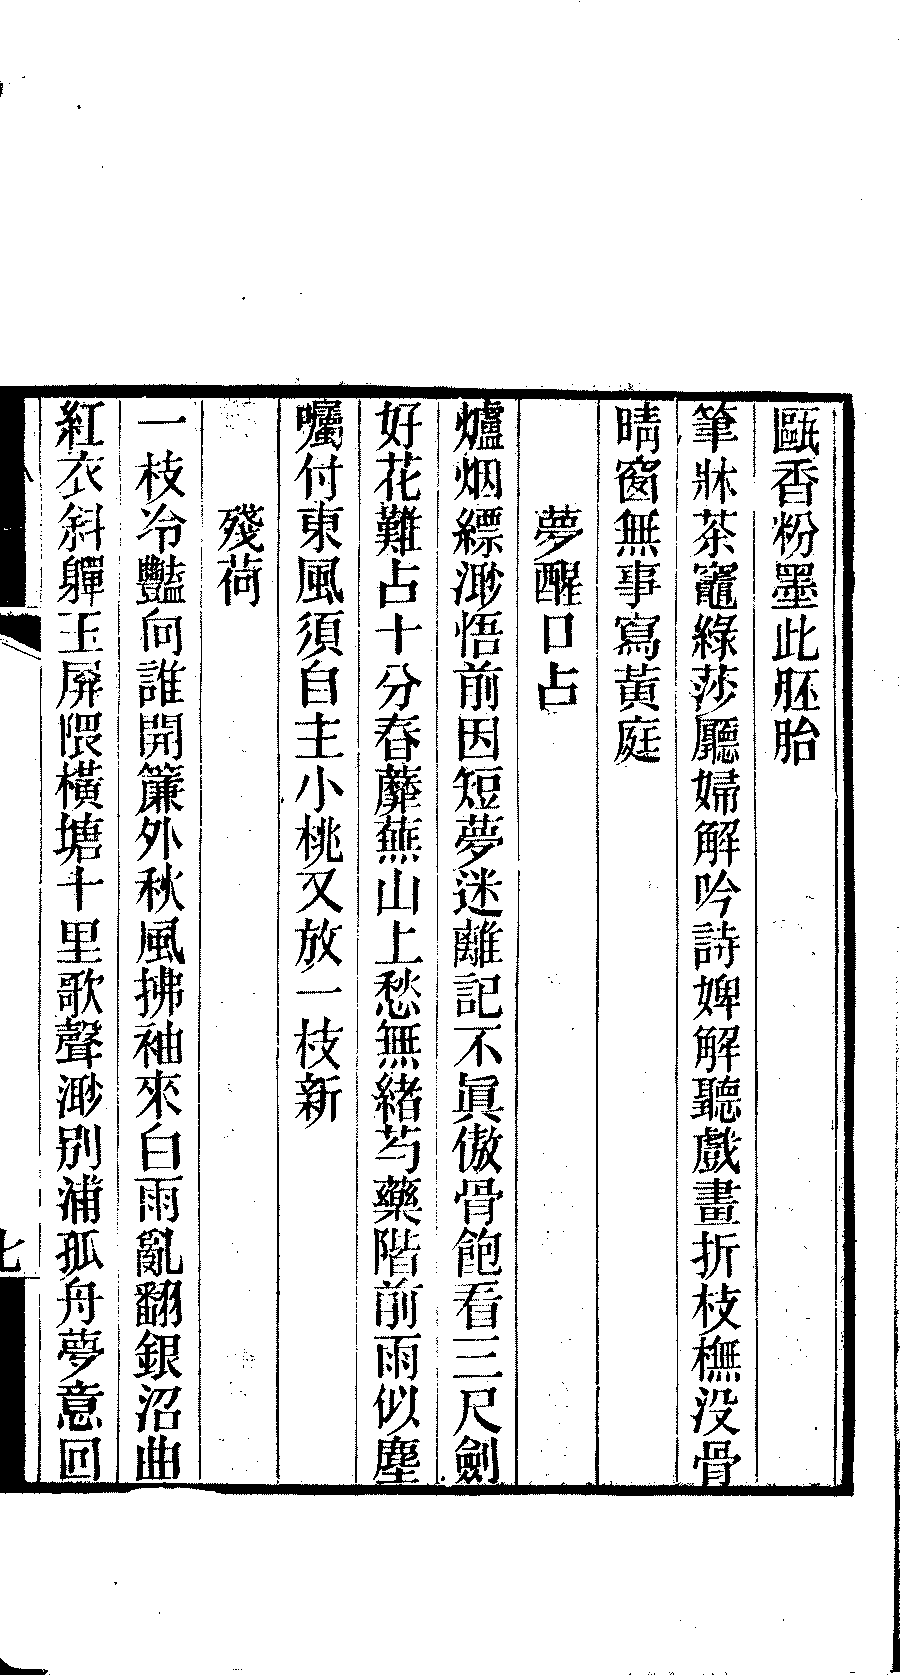 甌香粉墨此胚胎
筆牀茶竈綠莎廳婦解吟詩婢解聽戲畫折枝橅没骨
晴窗無事寫黃庭
夢醒口占
爐烟縹渺悟前因短夢迷離記不眞傲骨飽看三尺劍
好花難占十分春蘼蕪山上愁無緖芍藥階前雨似塵
囑付東風須自主小桃又放一枝新
殘荷
一枝冷豔向誰開簾外秋風拂袖來白雨亂翻銀沼曲
紅衣斜嚲玉屏隈橫塘十里歌聲渺別浦孤舟夢意回
七